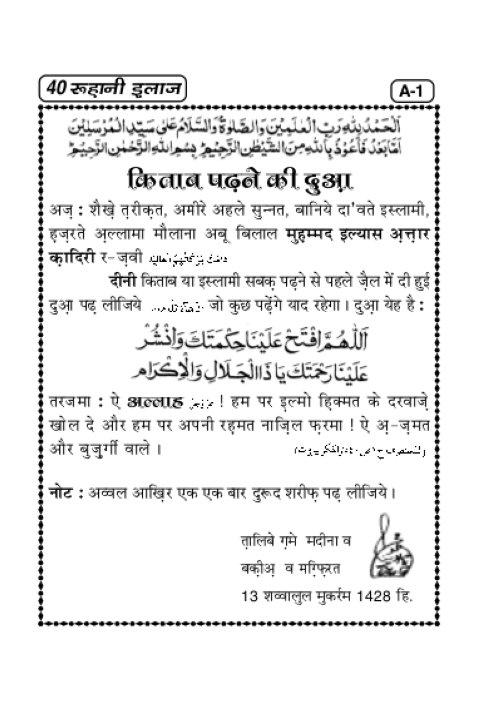 40 रूहानी इलाज
A-1
اَلْحَمْدُ لِلّٰهِ رَبِّ الْعٰلَمِيْنَ وَالصَّلٰوةُ وَالسَّلَامُ عَلٰى سَيِّدِ الْمُرْسَلِيْنَ
اَمَّا بَعْدُ فَاَعُوْذُ بِاللّٰهِ مِنَ الشَّيْطٰنِ الرَّجِيْمِ بِسْمِ اللّٰهِ الرَّحْمٰنِ الرَّحِيْمِ
किताब पढ़ने की दुआ़
अज़ : शैख़े त़रीक़त, अमीरे अहले सुन्नत, बानिये दा'वते इस्लामी,
ह़ज़रते अ़ल्लामा मौलाना अबू बिलाल मुह़म्मद इल्यास अ़त़्त़ार
क़ादिरी र-ज़वी
दीनी किताब या इस्लामी सबक़ पढ़ने से पहले ज़ैल में दी हुई
दुआ़ पढ़ लीजिये जो कुछ पढ़ेंगे याद रहेगा। दुआ़ येह है :
اَللّٰهُمَّ افْتَحْ عَلَيْنَا حِكْمَتَكَ وَانْشُرْ
عَلَيْنَا رَحْمَتَكَ يَا ذَا الْجَلَالِ وَالْاِكْرَام
तरजमा : ऐ अल्लाह ! हम पर इल्मो ह़िक्मत के दरवाज़े
खोल दे और हम पर अपनी रह़मत नाज़िल फ़रमा ! ऐ अ़-ज़मत
और बुज़ुर्गी वाले।
नोट : अव्वल आख़िर एक एक बार दुरूद शरीफ़ पढ़ लीजिये।
त़ालिबे ग़मे मदीना व
बक़ीअ़ व मग़्फ़िरत
13 शव्वालुल मुकर्रम 1428 हि.